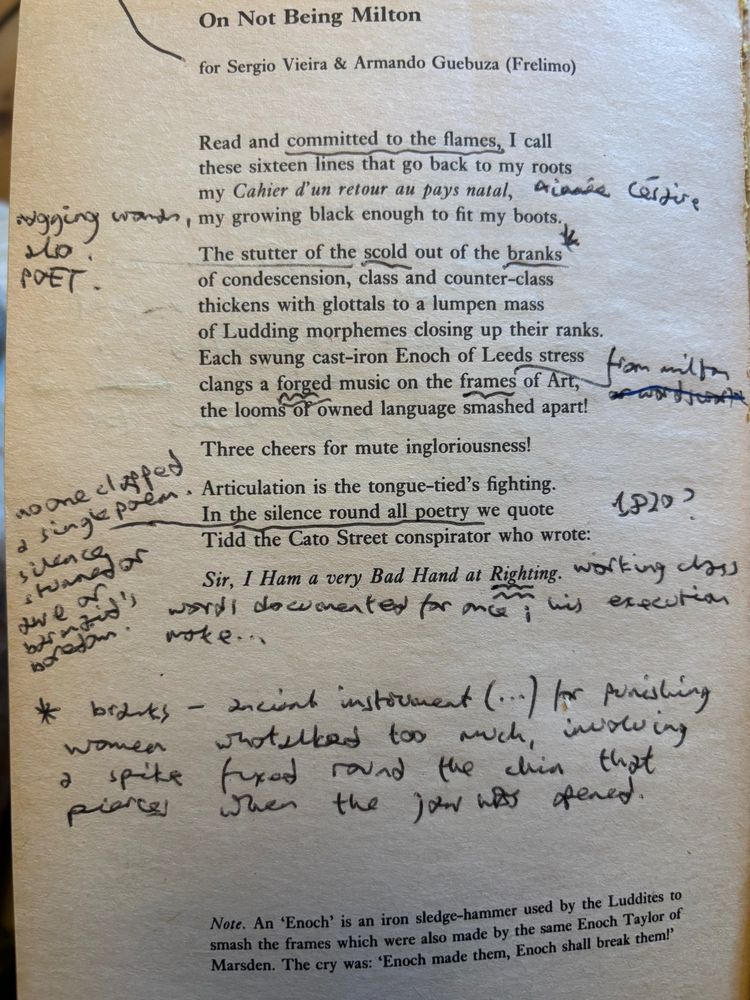 On Not Being Milton
for Sergio Vieira & Armando Guebuza (Frelimo)
Read and committed to the flames, I call
these sixteen lines that go back to my roots
my Cahier d'un retour au pays natal,
my growing black enough to fit my boots.
The stutter of the scold out of the branks
of condescension, class and counter-class
thickens with glottals to a lumpen mass
of Ludding morphemes closing up their ranks.
Each swung cast-iron Enoch of Leeds stress
clangs a forged music on the frames of Art,
the looms of owned language smashed apart!
Three cheers for mute ingloriousness!
Articulation is the tongue-tied's fighting.
In the silence round all poetry we quote
Tidd the Cato Street conspirator who wrote:
Sir, I Ham a very Bad Hand at Righting.
also.
POET.
from milton
or wordsworth
no one clapped
a single poem.
silence
stunned or
awe or
boredom.
1820?
working class
words documented for once; his execution
note...
* branks – ancient instrument (...) for punishing
women who talked too much, involving
a spike fixed round the chin that
pierces when the jaw was opened.
Note. An 'Enoch' is an iron sledge-hammer used by the Luddites to
smash the frames which were also made by the same Enoch Taylor of
Marsden. The cry was: 'Enoch made them, Enoch shall break them!'